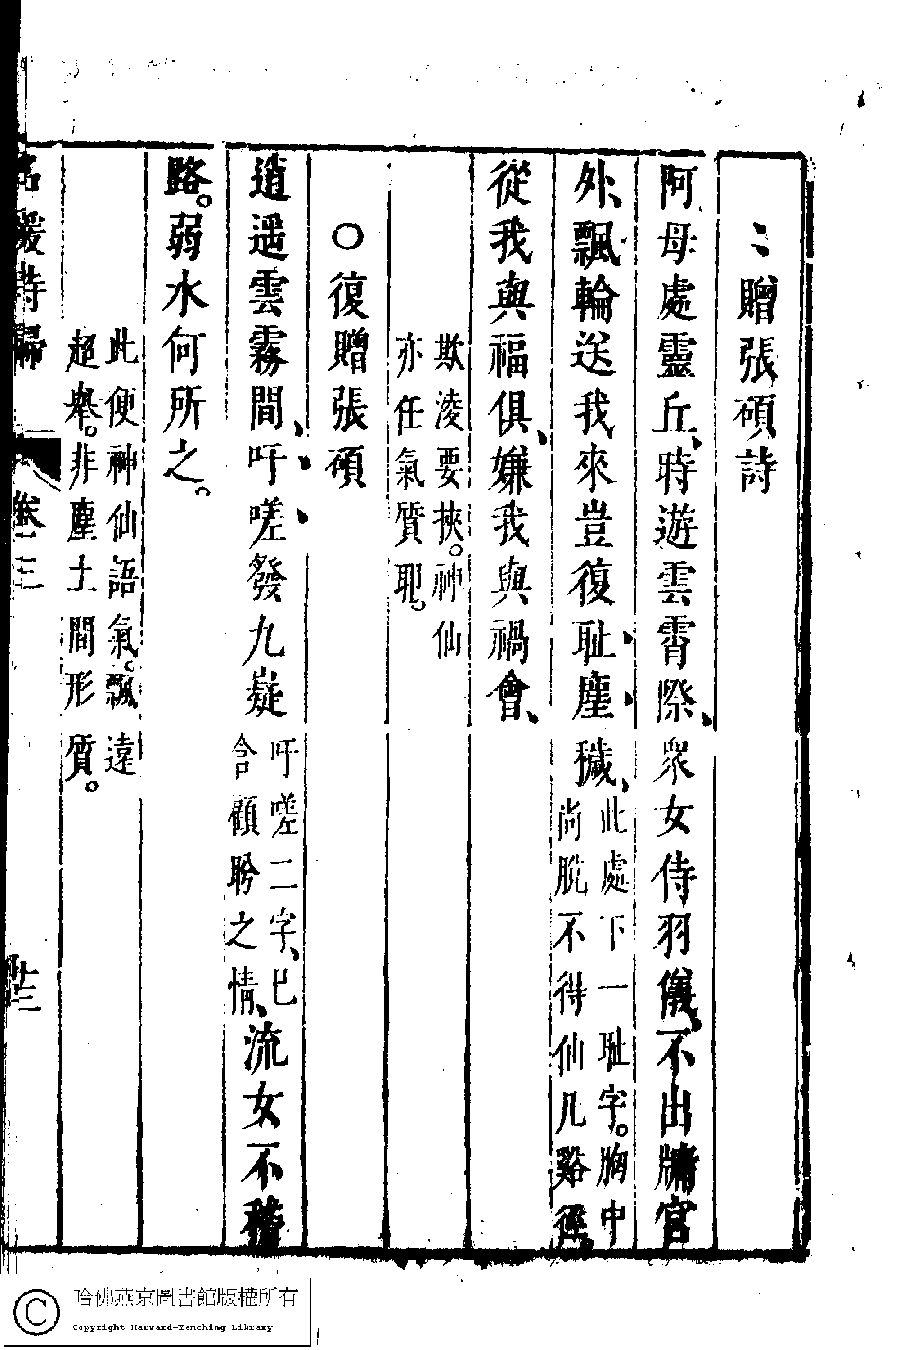 贈張碩詩
阿母處靈丘、時遊雲霄際、衆女侍羽儀、不出牗宮
外、飄輪送我來豈復耻塵穢、
此處下一耻字。胸中
尚脫不得仙凡谿徑、
從我與福俱、嫌我與禍會、
欺凌要挾。神仙
亦任氣質耶。
○復贈張碩
逍遥雲霧間、吁嗟發九嶷
吁嗟二字、已
含顧盻之情、
流女不稽
路。弱水何所之。
此便神仙語氣。飄遠
超舉。非塵土間形質。
名媛詩歸 卷三 十二
哈佛燕京圖書館版權所有
Copyright Harvard-Yenching Library